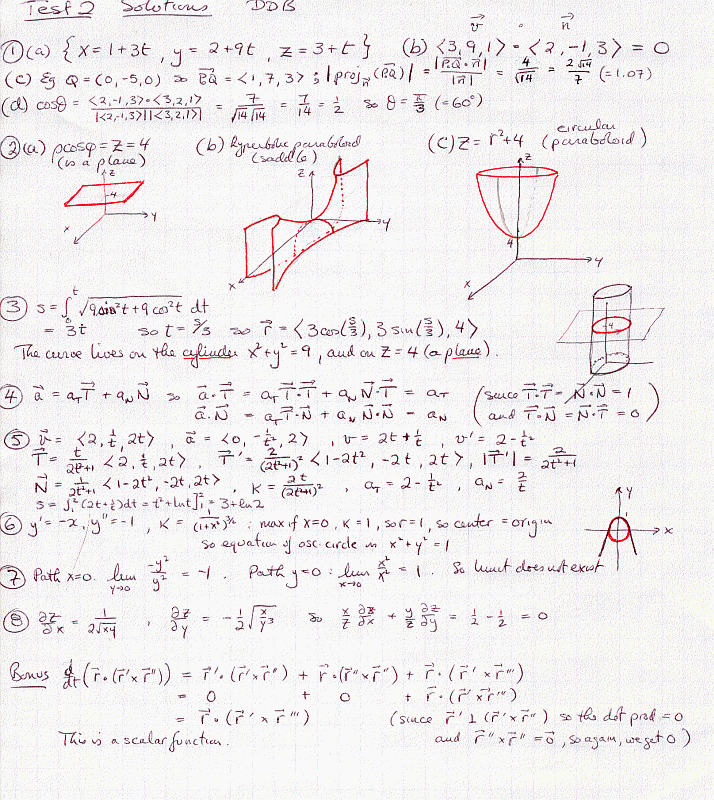 Test 2 Solutions DDB
① (a) { x = 1+3t , y = 2+9t , z = 3+t } (b) ⟨3, 9, 1⟩ • ⟨2, -1, 3⟩ = 0
v⃗ • n⃗
(c) Eg Q = (0, -5, 0) so PQ⃗ = ⟨1, 7, 3⟩ ; |proj_n⃗ (PQ⃗)| = |PQ⃗ • n⃗| / |n⃗| = 4/√14 = 2√14/7 (=1.07)
(d) cosθ = ⟨2,-1,3⟩•⟨3,2,1⟩ / |⟨2,-1,3⟩||⟨3,2,1⟩| = 7/√14√14 = 7/14 = 1/2 so θ = π/3 (=60°)
② (a) ρcosφ = z = 4 (is a plane)
z 4 y x
(b) hyperbolic paraboloid (saddle)
z y x
(c) z = r²+4 (circular paraboloid)
z 4 y x
③ s = ∫₀ᵗ √(9sin²t + 9cos²t) dt
= 3t so t = s/3 so r⃗ = ⟨3cos(s/3), 3sin(s/3), 4⟩
The curve lives on the cylinder x²+y²=9, and on z=4 (a plane).
4
④ a⃗ = a_T T⃗ + a_N N⃗ so a⃗•T⃗ = a_T T⃗•T⃗ + a_N N⃗•T⃗ = a_T (since T⃗•T⃗ = N⃗•N⃗ = 1
a⃗•N⃗ = a_T T⃗•N⃗ + a_N N⃗•N⃗ = a_N and T⃗•N⃗ = N⃗•T⃗ = 0)
⑤ v⃗ = ⟨2, 1/t, 2t⟩ , a⃗ = ⟨0, -1/t², 2⟩ , v = 2t + 1/t , v' = 2 - 1/t²
T⃗ = t/(2t²+1) ⟨2, 1/t, 2t⟩ , T⃗' = 2/(2t²+1)² ⟨1-2t², -2t, 2t⟩ , |T⃗'| = 2/(2t²+1)
N⃗ = 1/(2t²+1) ⟨1-2t², -2t, 2t⟩ , K = 2t/(2t²+1)² , a_T = 2 - 1/t² , a_N = 2/t
s = ∫₁²(2t+1/t)dt = t²+lnt]₁² = 3+ln2
⑥ y' = -x, y'' = -1 , K = 1/(1+x²)^(3/2) : max if x=0, K=1, so r=1, so center = origin
so equation of osc. circle is x²+y²=1
y x
⑦ Path x=0: lim y→0 -y²/y² = -1. Path y=0: lim x→0 x²/x² = 1. So limit does not exist
⑧ ∂z/∂x = 1/(2√xy) , ∂z/∂y = -1/2 √(x/y³) so x/z ∂z/∂x + y/z ∂z/∂y = 1/2 - 1/2 = 0
Bonus d/dt (r⃗•(r⃗'×r⃗'')) = r⃗'•(r⃗'×r⃗'') + r⃗•(r⃗''×r⃗'') + r⃗•(r⃗'×r⃗''')
= 0 + 0 + r⃗•(r⃗'×r⃗''')
= r⃗•(r⃗'×r⃗''') (since r⃗' ⊥ (r⃗'×r⃗'') so the dot prod = 0
This is a scalar function. and r⃗''×r⃗'' = 0⃗, so again, we get 0)